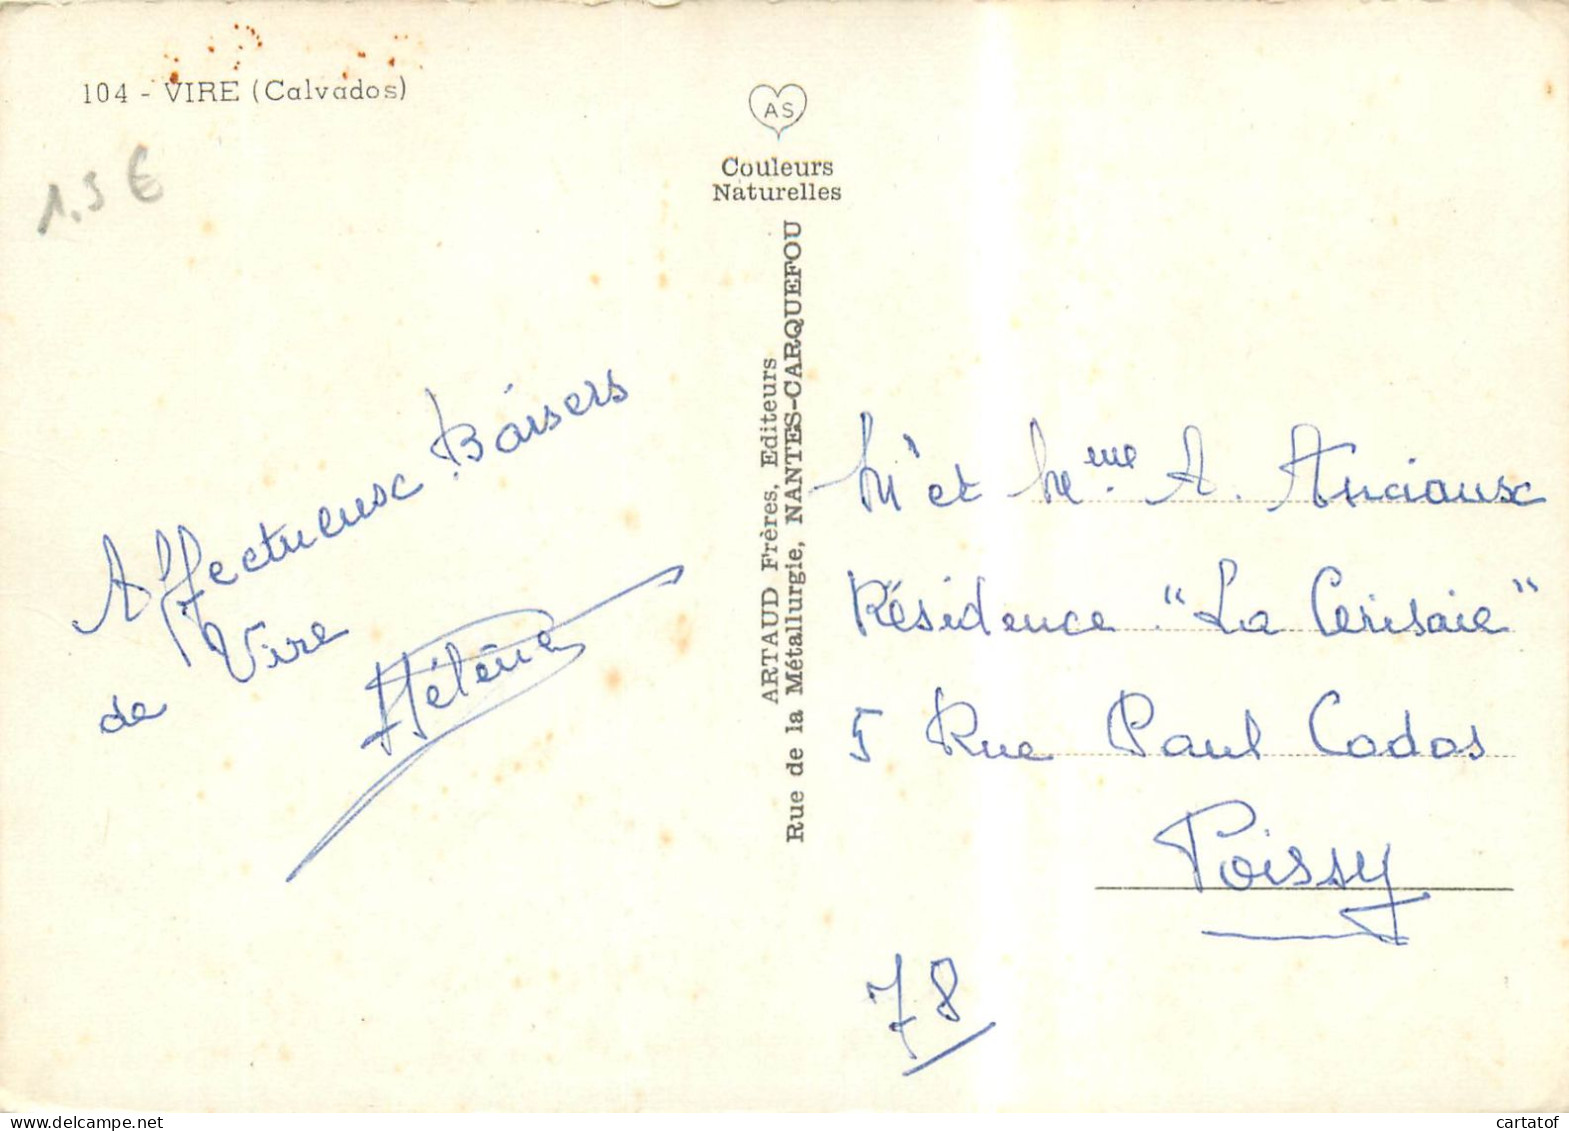 104 - VIRE (Calvados)
1.5 €
AS
Couleurs
Naturelles
ARTAUD Frères, Editeurs
Rue de la Métallurgie, NANTES-CARQUEFOU
Affectueux Baisers
de Vire
Hélène
Mr et Mme A. Anciaux
Résidence "La Cerisaie"
5 Rue Paul Codos
Poissy
78
cartatof